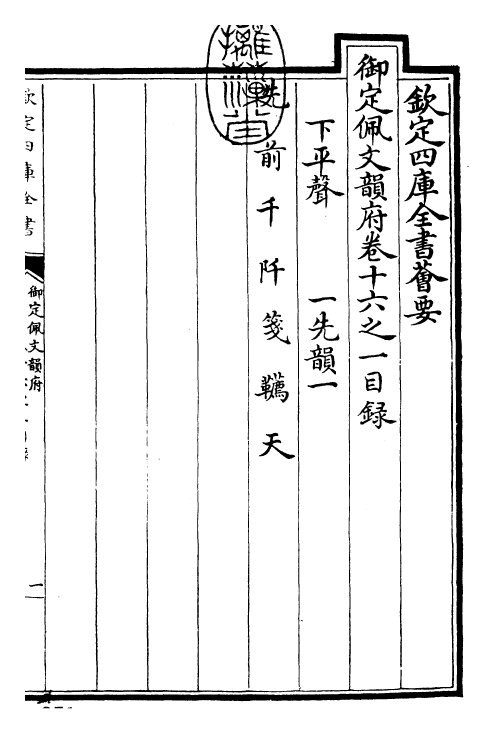 欽定四庫全書薈要
御定佩文韻府卷十六之一目録
下平聲 一先韻一
先 前 千 阡 箋 韉 天
欽定四庫全書
御定佩文韻府
一